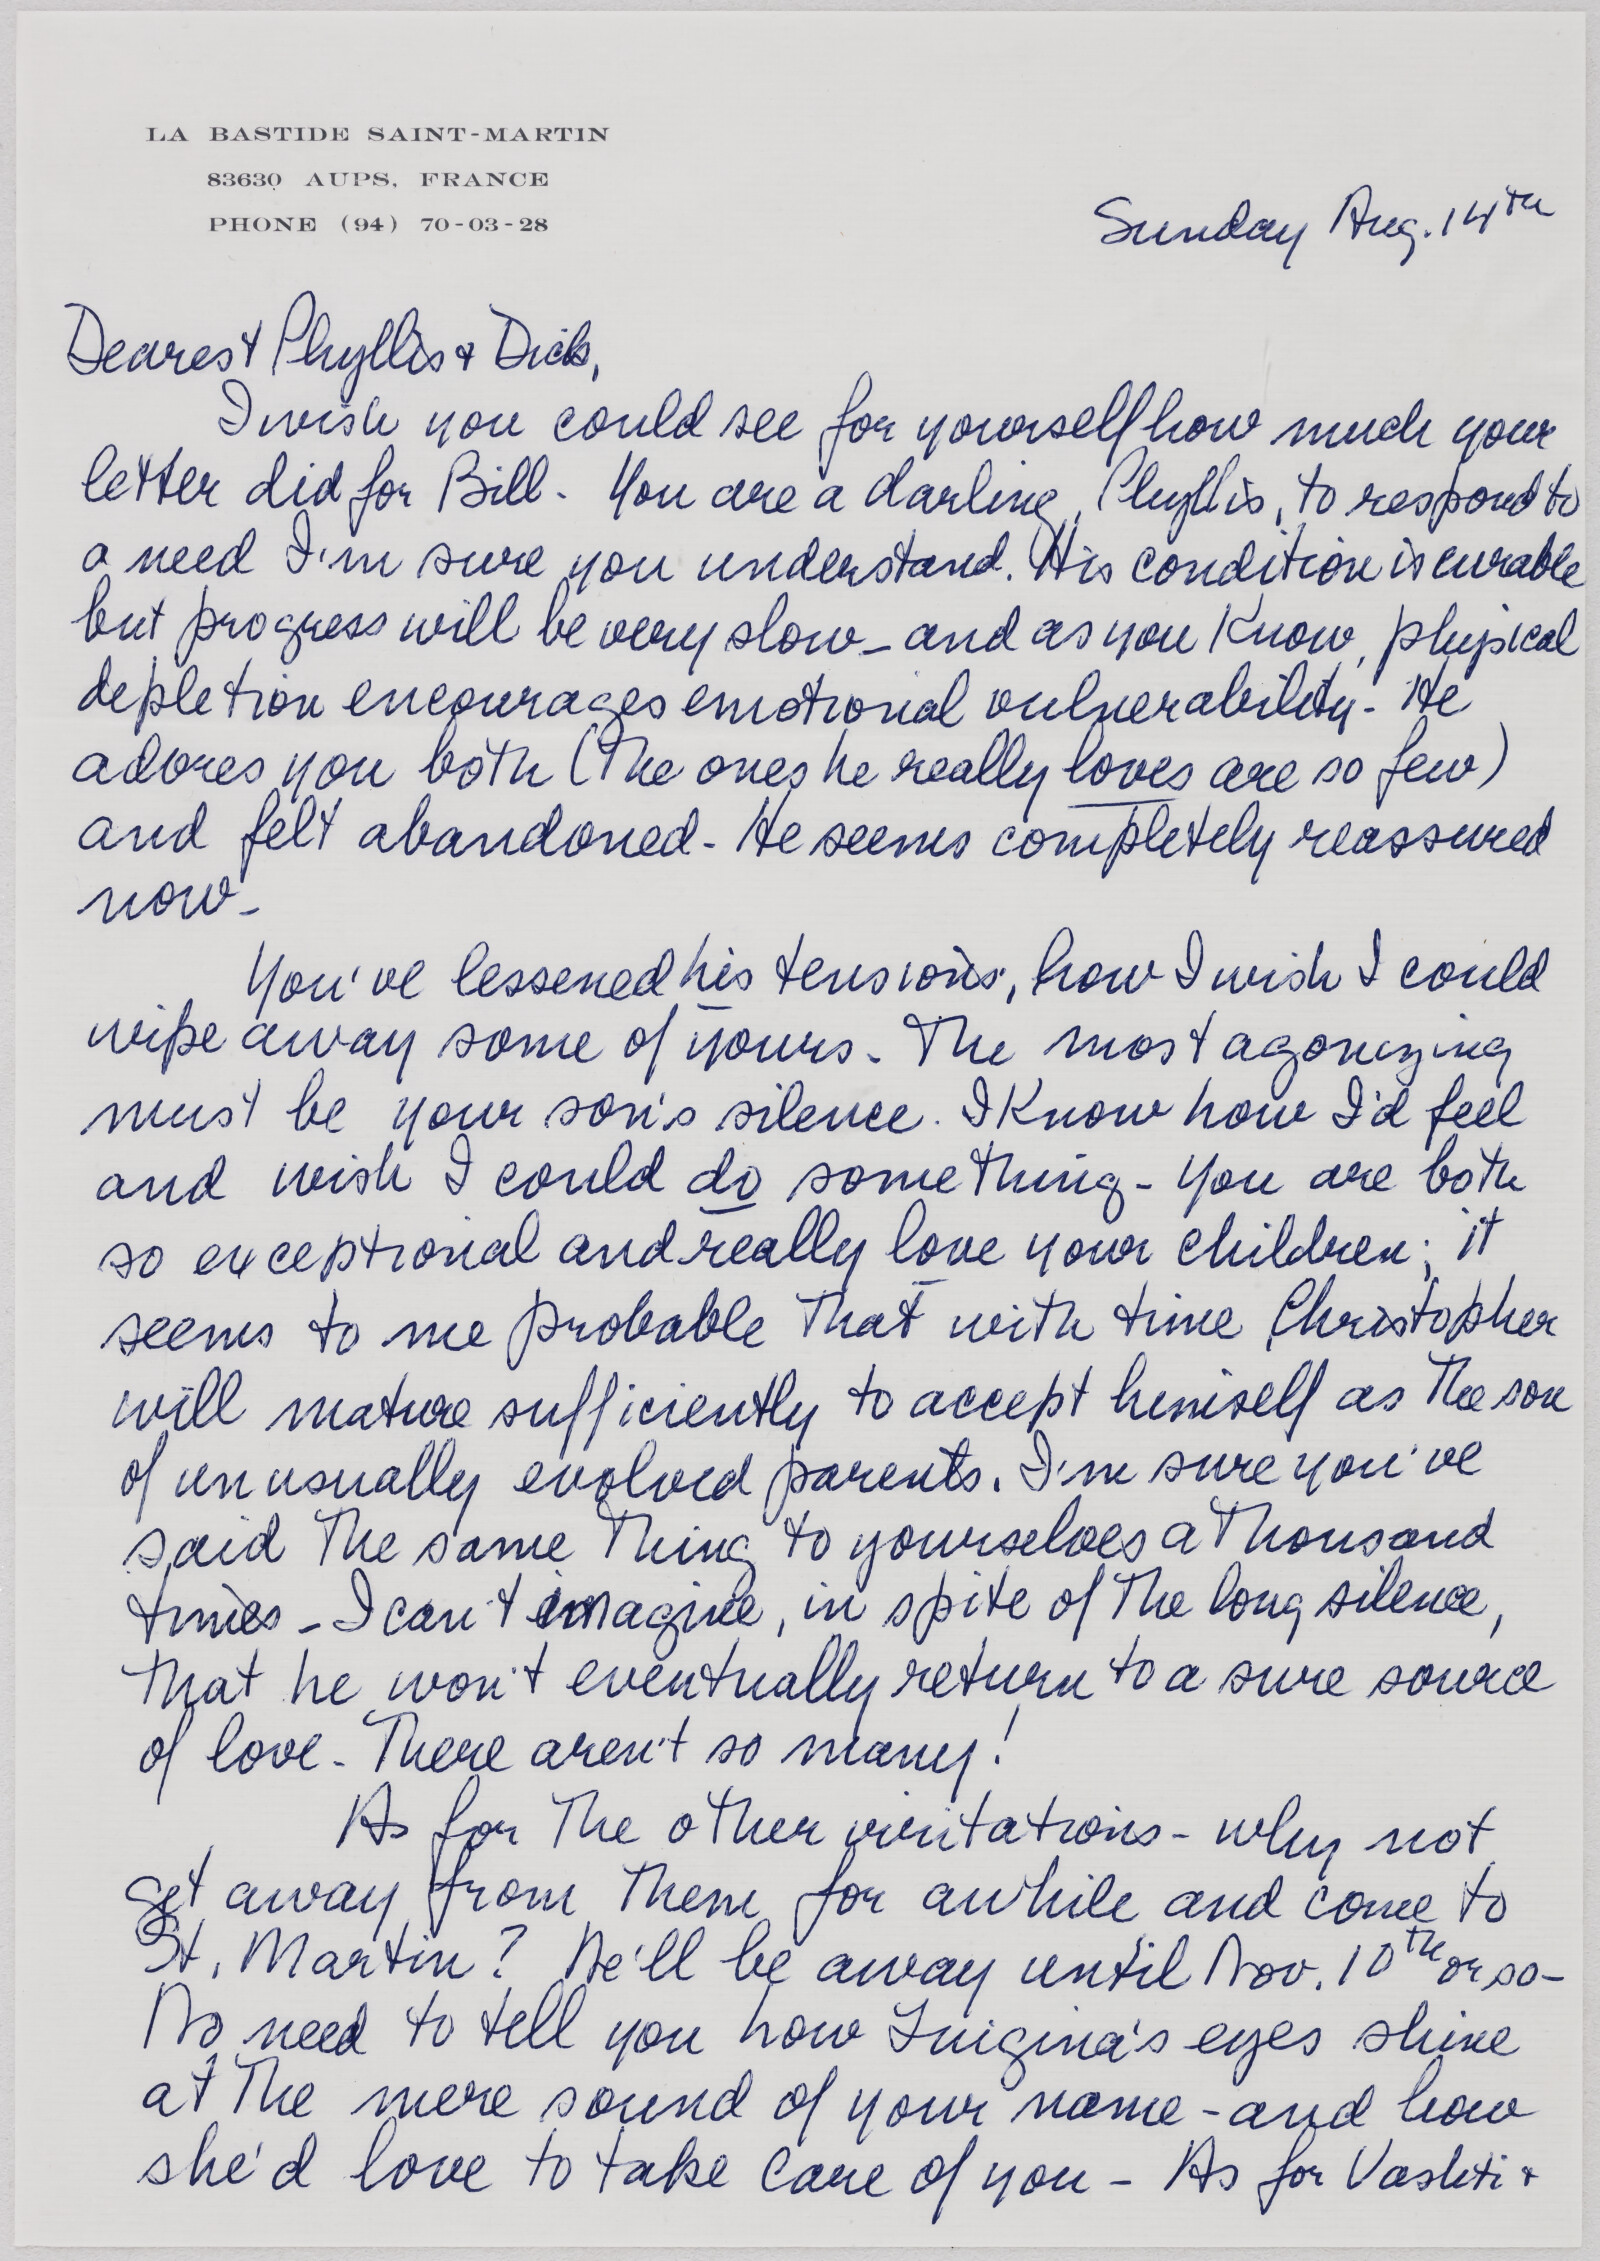 LA BASTIDE SAINT-MARTIN
83630 AUPS, FRANCE
PHONE (94) 70-03-28
Sunday Aug. 14th
Dearest Phyllis & Dick,
I wish you could see for yourself how much your
letter did for Bill - You are a darling, Phyllis, to respond to
a need I'm sure you understand. His condition is curable
but progress will be very slow - and as you know, physical
depletion encourages emotional vulnerability - He
adores you both (the ones he really loves are so few)
and felt abandoned - He seems completely reassured
now -
You've lessened his tensions, how I wish I could
wipe away some of yours - The most agonizing
must be your son's silence. I know how I'd feel
and wish I could do something - You are both
so exceptional and really love your children; it
seems to me probable that with time Christopher
will mature sufficiently to accept himself as the son
of unusually evolved parents. I'm sure you've
said the same thing to yourselves a thousand
times - I can't imagine, in spite of the long silence,
that he won't eventually return to a sure source
of love - There aren't so many!
As for the other irritations - why not
get away from them for awhile and come to
St. Martin? We'll be away until Nov. 10th or so -
No need to tell you how Luigina's eyes shine
at the mere sound of your name - and how
she'd love to take care of you - As for Vashti &